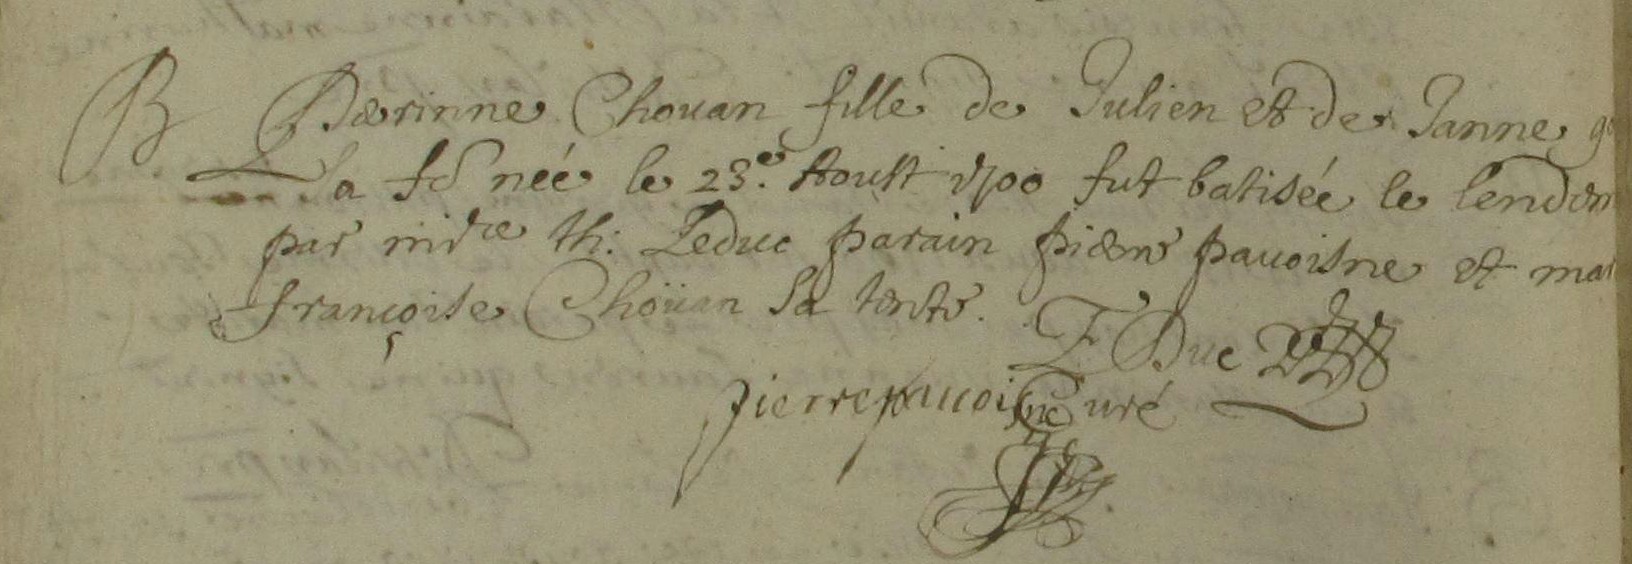 B Perrinne Choüan fille de Julien et de Janne
sa fe née le 23e. Aoust 1700 fut batisée le lendem
par mdre th: Leduc parain pierre pavoisne et mar
françoise Choüan sa tente.
L Duc
pierre pavoisne Curé